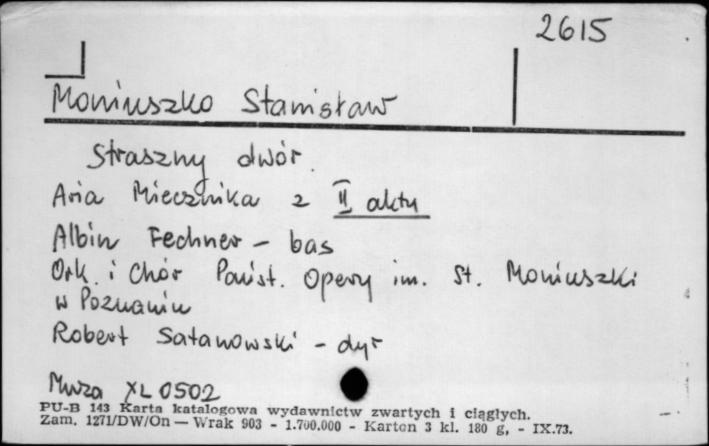 2615
Moniuszko Stanisław
Straszny dwór.
Aria Miecznika z II aktu
Albin Fechner - bas
Ork. i Chór Państ. Opery im. St. Moniuszki
w Poznaniu
Robert Satanowski - dyr
Muza XL 0502
PU-B 143 Karta katalogowa wydawnictw zwartych i ciągłych.
Zam. 1271/DW/On — Wrak 903 - 1.700.000 - Karton 3 kl. 180 g, - IX.73.